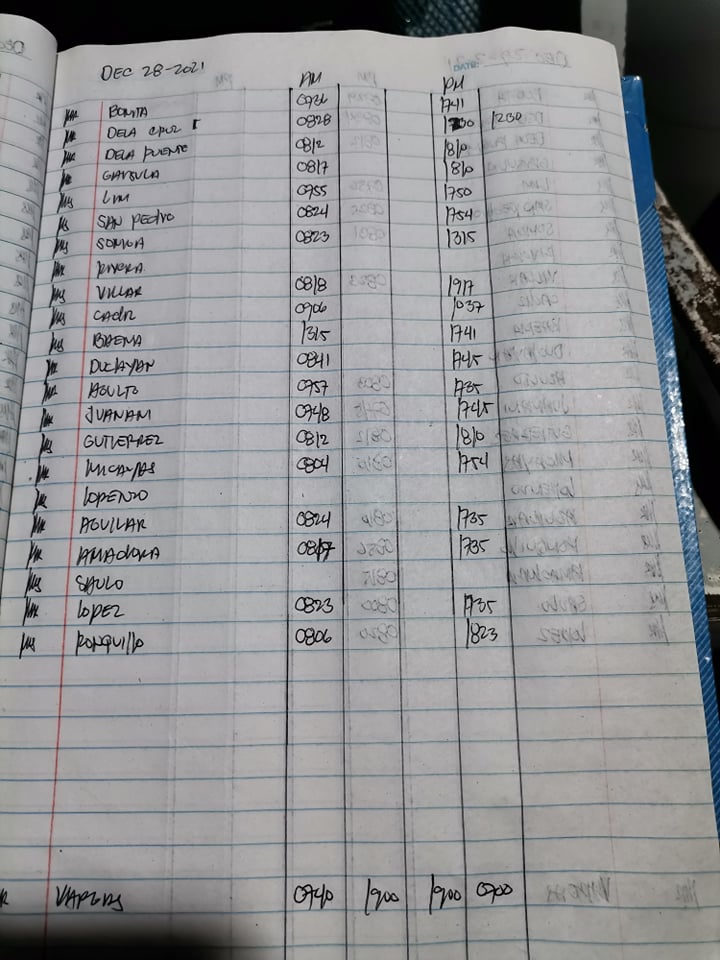 DEC 28-2021
AM PM
MR BONITA 0736 1741
MR DELA CRUZ 0828 1700 1200
MR DELA PUENTE 0812 1810
MR 0817 1810
MS LIM 0755 1750
MS SAN PEDRO 0824 1754
MS 0823 1315
MS RIVERA
MS VILLAR 0818 1917
MR 0906 1037
MS BAENA 1315 1741
MR DUCLAYAN 0841 1745
MR AGULTO 0757 1735
MR JUANANI 0748 1745
MR GUTIERREZ 0812 1810
MR MICAYAS 0804 1754
MR LORENZO
MR AGUILAR 0824 1735
MR AMADORA 0817 1735
MS SAULO
MR LOPEZ 0823 1735
MS RONQUILLO 0806 1823
VARGAS 0740 1900 1900 0700